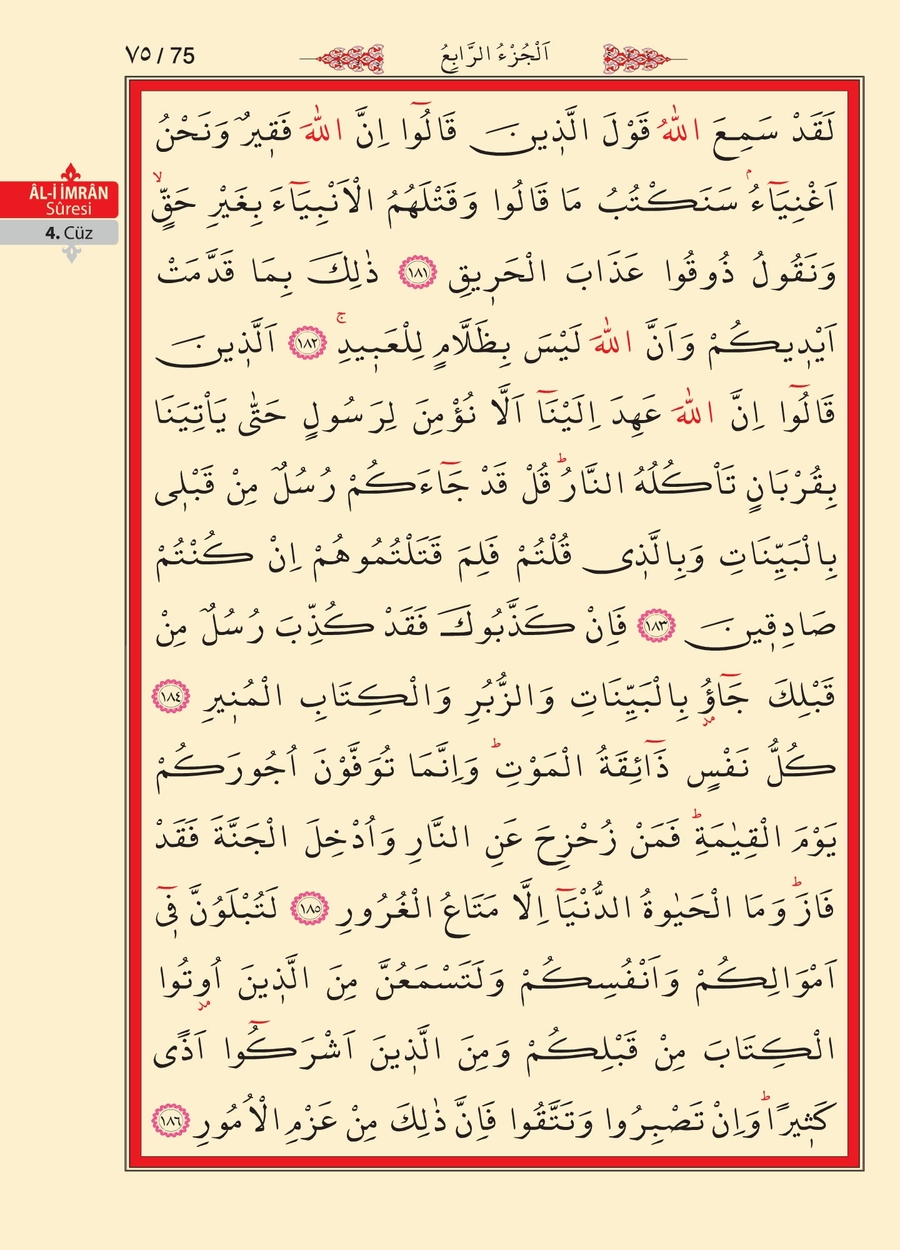 ٧٥ / 75
اَلْجُزْءُ الرَّابِعُ
ÂL-İ İMRÂN
Sûresi
4. Cüz
لَقَدْ سَمِعَ اللّٰهُ قَوْلَ الَّذ۪ينَ قَالُٓوا اِنَّ اللّٰهَ فَق۪يرٌ وَنَحْنُ
اَغْنِيَٓاءُۢ سَنَكْتُبُ مَا قَالُوا وَقَتْلَهُمُ الْاَنْبِيَٓاءَ بِغَيْرِ حَقٍّۙ
وَنَقُولُ ذُوقُوا عَذَابَ الْحَر۪يقِ ﴿١٨١﴾ ذٰلِكَ بِمَا قَدَّمَتْ
اَيْد۪يكُمْ وَاَنَّ اللّٰهَ لَيْسَ بِظَلَّامٍ لِلْعَب۪يدِۚ ﴿١٨٢﴾ اَلَّذ۪ينَ
قَالُٓوا اِنَّ اللّٰهَ عَهِدَ اِلَيْنَٓا اَلَّا نُؤْمِنَ لِرَسُولٍ حَتّٰى يَأْتِيَنَا
بِقُرْبَانٍ تَأْكُلُهُ النَّارُۜ قُلْ قَدْ جَٓاءَكُمْ رُسُلٌ مِنْ قَبْل۪ى
بِالْبَيِّنَاتِ وَبِالَّذ۪ى قُلْتُمْ فَلِمَ قَتَلْتُمُوهُمْ اِنْ كُنْتُمْ
صَادِق۪ينَ ﴿١٨٣﴾ فَاِنْ كَذَّبُوكَ فَقَدْ كُذِّبَ رُسُلٌ مِنْ
قَبْلِكَ جَٓاؤُ۫ بِالْبَيِّنَاتِ وَالزُّبُرِ وَالْكِتَابِ الْمُن۪يرِ ﴿١٨٤﴾
كُلُّ نَفْسٍ ذَٓائِقَةُ الْمَوْتِۜ وَاِنَّمَا تُوَفَّوْنَ اُجُورَكُمْ
يَوْمَ الْقِيٰمَةِۜ فَمَنْ زُحْزِحَ عَنِ النَّارِ وَاُدْخِلَ الْجَنَّةَ فَقَدْ
فَازَۜ وَمَا الْحَيٰوةُ الدُّنْيَٓا اِلَّا مَتَاعُ الْغُرُورِ ﴿١٨٥﴾ لَتُبْلَوُنَّ ف۪ٓى
اَمْوَالِكُمْ وَاَنْفُسِكُمْ وَلَتَسْمَعُنَّ مِنَ الَّذ۪ينَ اُو۫تُوا
الْكِتَابَ مِنْ قَبْلِكُمْ وَمِنَ الَّذ۪ينَ اَشْرَكُٓوا اَذًى
كَث۪يرًاۜ وَاِنْ تَصْبِرُوا وَتَتَّقُوا فَاِنَّ ذٰلِكَ مِنْ عَزْمِ الْاُمُورِ ﴿١٨٦﴾